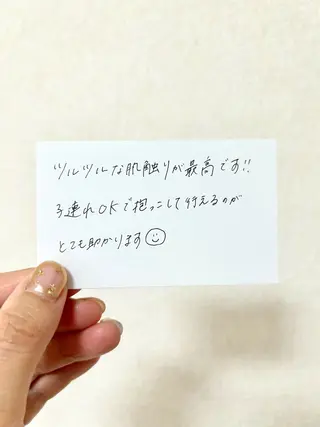 ツルツルな肌触りが最高です!!
子連れOKで抱っこして行えるのが
とても助かります☺